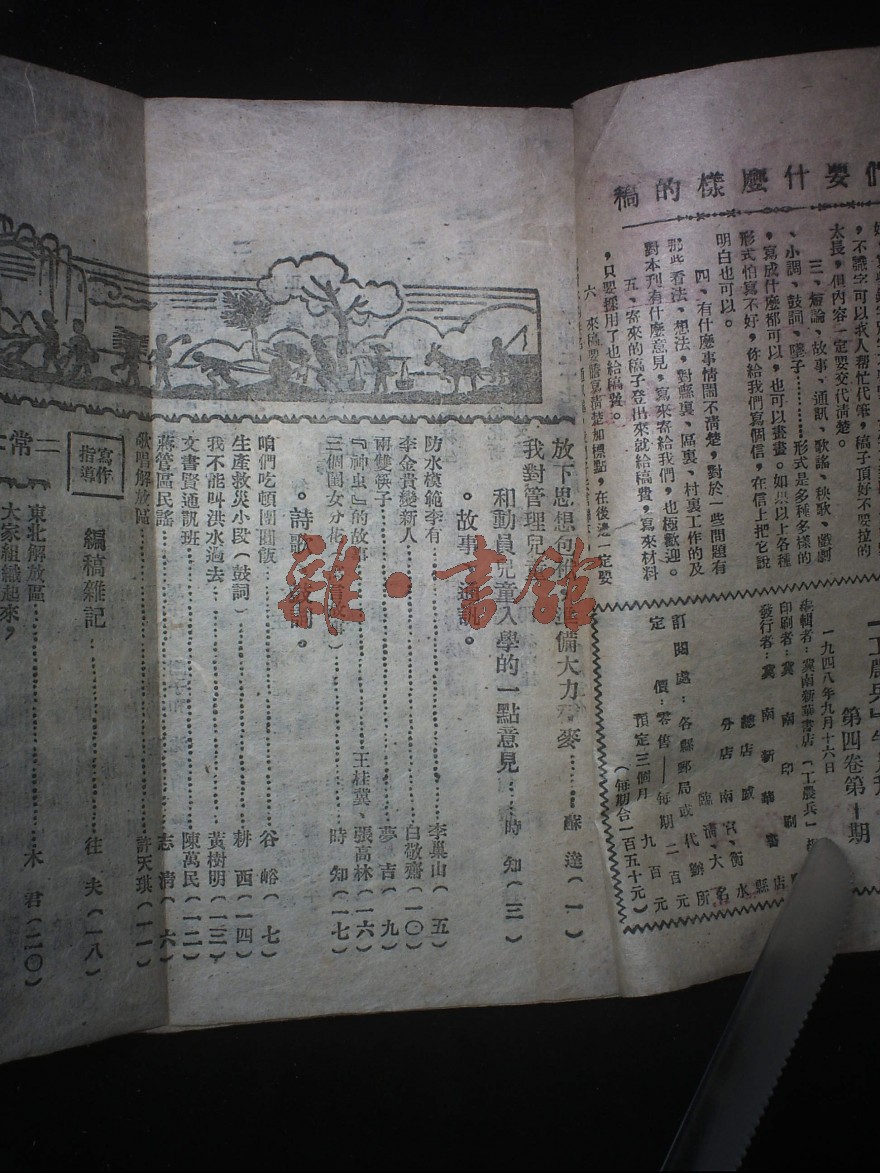 們要什麼樣的稿
，不識字可以找人幫忙代筆，稿子頂好不要拉的
太長，但內容一定要交代清楚。
三、短論、故事、通訊、歌謠、秧歌、戲劇
、小調、鼓詞、墜子………形式是多種多樣的
，寫成什麼都可以，也可以畫畫。如果以上各種
形式怕寫不好，你給我們寫個信，在信上把它說
明白也可以。
四、有什麼事情鬧不清楚，對於一些問題有
那些看法、想法，對縣裏、區裏、村裏工作的及
對本刊有什麼意見，寫來寄給我們，也極歡迎。
五、寄來的稿子登出來就給稿費，寫來材料
，只要採用了也給稿費。
六、來稿要謄寫清楚加標點，在後邊一定要
第四卷第十期
一九四八年九月十六日
編輯者：冀南新華書店「工農兵」
印刷者：冀南印刷
發行者：冀南新華書店
總店 威縣
分店 南宮、衡水
臨清、大名
訂閱處：各縣郵局或代辦所
定價：零售—每期二百元
預定三個月 九百元
（每期合一百五十元）
放下思想包袱，準備大力種麥……蘇達（一）
我對管理兒童
和動員兒童入學的一點意見……時知（三）
。故事、通訊。
防水模範李有……李巢山（五）
李金貴變新人……白敬齋（一〇）
兩雙筷子……夢吉（九）
『神虫』的故事……王桂冀、張高林（一六）
三個閨女分花……時知（一七）
。詩歌、鼓詞。
咱們吃頓團圓飯……谷峪（七）
生產救災小段（鼓詞）……耕西（一四）
我不能叫洪水過去……黃樹明（一三）
文書賢通訊班……陳萬民（一二）
蔣管區民謠……志清（六）
歌唱解放區……許天琪（一一）
寫作指導
編稿雜記……往夫（一八）
東北解放區……木君（二〇）
大家組織起來，
二常
雜·書館